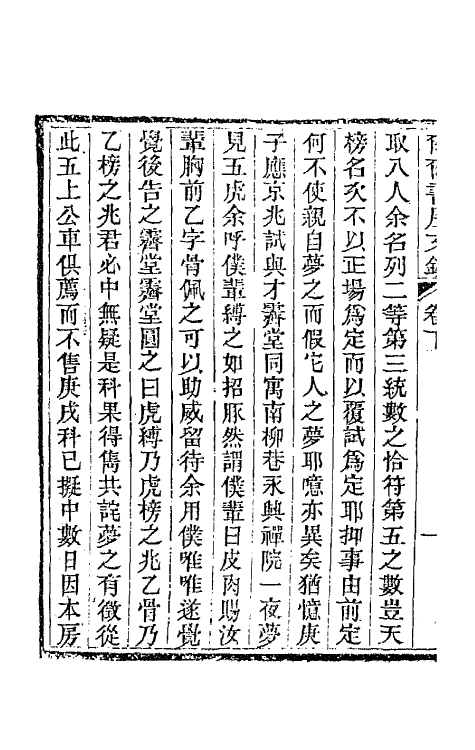 卷下
一
取入人余名列二等第三統數之恰符第五之數豈天
榜名次不以正場爲定而以覆試爲定耶抑事由前定
何不使親自夢之而假它人之夢耶噫亦異矣猶憶庚
子應京兆試與才霽堂同寓南柳巷永興禪院一夜夢
見五虎余呼僕輩縛之如招豚然謂僕輩曰皮肉賜汝
輩胸前乙字骨佩之可以助威留待余用僕唯唯遂覺
覺後告之霽堂霽堂圓之曰虎縛乃虎榜之兆乙骨乃
乙榜之兆君必中無疑是科果得雋共詫夢之有徵從
此五上公車俱薦而不售庚戌科已擬中數日因本房